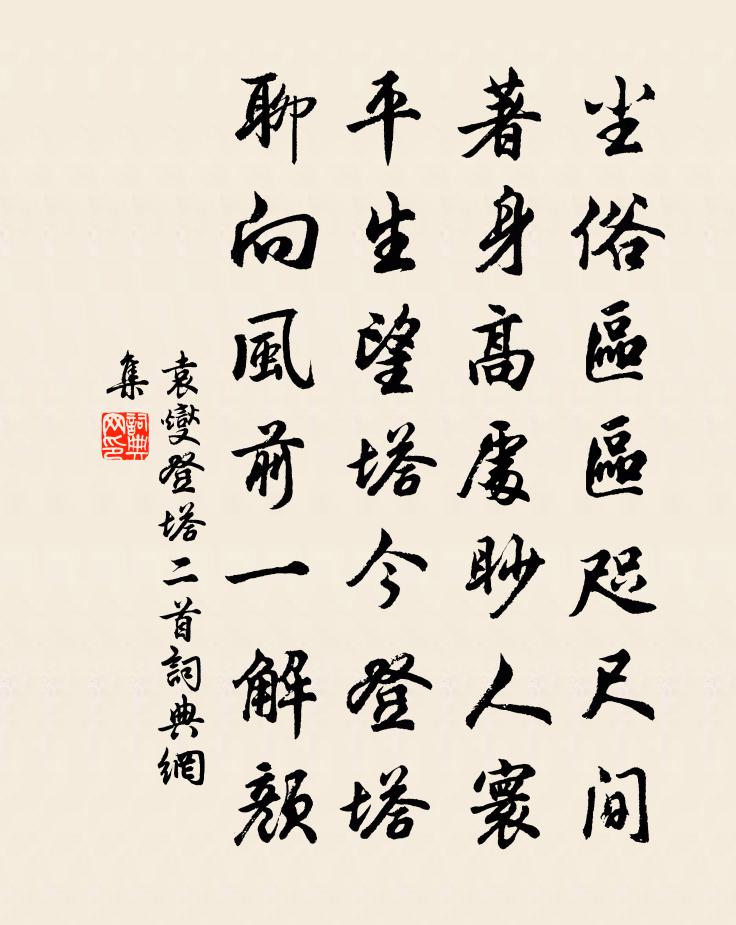 尘俗區區咫尺間
著身高處眇人寰
平生望塔今登塔
聊向風前一解顏
袁燮登塔二首詞典網
集
詞典
网印